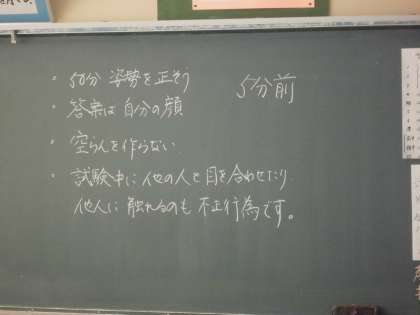 ・50分 姿勢を正そう
5分前
・答案は自分の顔
・空らんを作らない
・試験中に他の人と目を合わせたり
他人に触れるのも不正行為です。